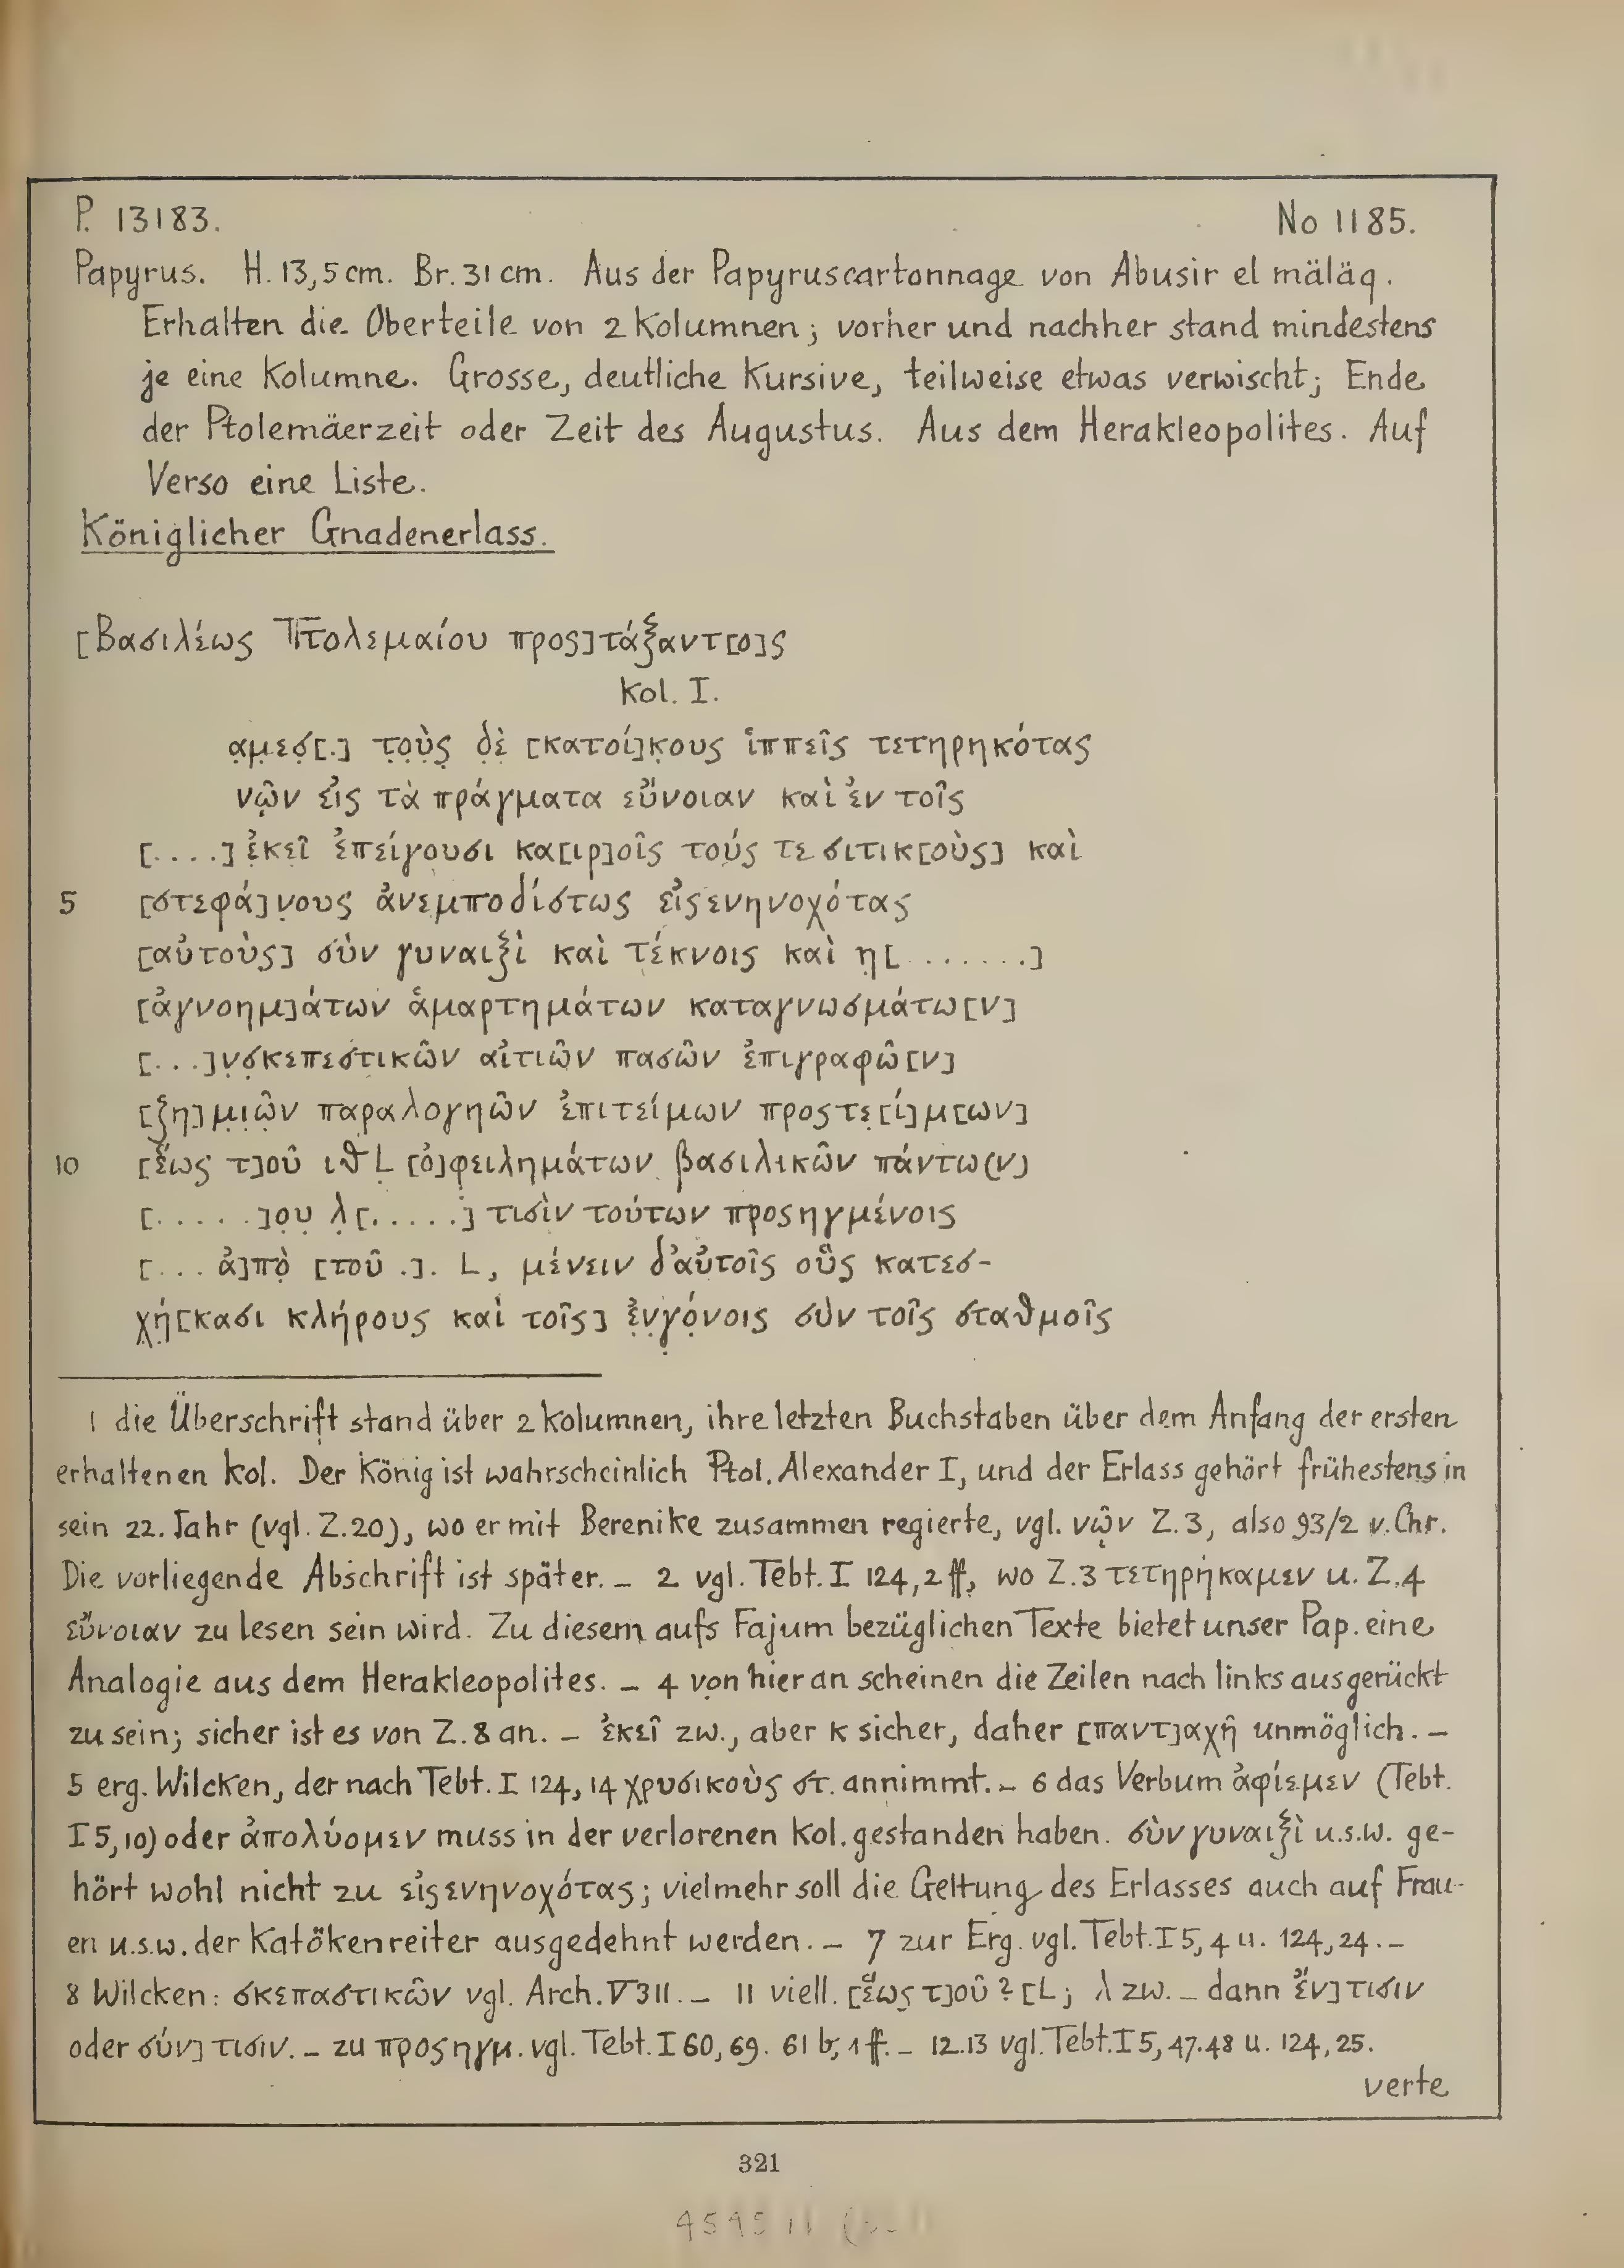 P. 13183. No 1185.
Papyrus. H. 13,5 cm. Br. 31 cm. Aus der Papyruscartonnage von Abusir el mäläq.
Erhalten die Oberteile von 2 Kolumnen; vorher und nachher stand mindestens
je eine Kolumne. Grosse, deutliche Kursive, teilweise etwas verwischt; Ende
der Ptolemäerzeit oder Zeit des Augustus. Aus dem Herakleopolites. Auf
Verso eine Liste.
Königlicher Gnadenerlass.
[Βασιλέως Πτολεμαίου προς]τάξαντ[ο]ς
Kol. I.
α̣μ̣εσ̣[.] τ̣ο̣ὺ̣ς̣ δ̣ὲ̣ [κατοί]κ̣ους ἱππεῖς τετηρηκότας
νῶ̣ν εἰς τὰ πράγματα εὔνοιαν καὶ ἐν τοῖς
[....] ἐ̣κε̣ῖ̣ ἐπείγουσι κα[ιρ]οῖς τούς τε σιτικ[οὺς] καὶ
5 [στεφά]ν̣ους ἀνεμποδίστως εἰςενηνοχότας
[αὐτοὺς] σὺν γυναιξὶ καὶ τέκνοις καὶ η[.......]
[ἀγνοημ]άτων ἁμαρτημάτων καταγνωσμάτω[ν]
[...]ν̣σ̣κεπεστικῶν αἰτιῶν πασῶν ἐπιγραφῶ[ν]
[ζη]μ̣ι̣ῶ̣ν παραλογηῶν ἐπιτείμων προςτε̣[ί]μ[ων]
10 [ἕως τ]οῦ ιθ L [ὀ]φειλημάτων βασιλικῶν πάντω(ν)
[......]ο̣υ̣ λ̣[.....] τισὶν τούτων προςηγμένοις
[... ἀ]πὸ̣ [τοῦ .]. L, μένειν δ'αὐτοῖς οὓς κατεσ-
χ̣ή̣[κασι κλήρους καὶ τοῖς] ἐ̣ν̣γ̣ό̣νοις σὺν τοῖς σταθμοῖς
1 die Überschrift stand über 2 Kolumnen, ihre letzten Buchstaben über dem Anfang der ersten
erhaltenen Kol. Der König ist wahrscheinlich Ptol. Alexander I, und der Erlass gehört frühestens in
sein 22. Jahr (vgl. Z.20), wo er mit Berenike zusammen regierte, vgl. νῶ̣ν Z.3, also 93/2 v. Chr.
Die vorliegende Abschrift ist später. – 2 vgl. Tebt. I 124,2 ff, wo Z.3 τετηρήκαμεν u. Z.4
εὔνοιαν zu lesen sein wird. Zu diesem aufs Fajum bezüglichen Texte bietet unser Pap. eine
Analogie aus dem Herakleopolites. – 4 von hier an scheinen die Zeilen nach links ausgerückt
zu sein; sicher ist es von Z.8 an. – ἐκεῖ zw., aber κ sicher, daher [παντ]αχῆ unmöglich. –
5 erg. Wilcken, der nach Tebt. I 124,14 χρυσικοὺς στ. annimmt. – 6 das Verbum ἀφίεμεν (Tebt.
I 5,10) oder ἀπολύομεν muss in der verlorenen Kol. gestanden haben. σὺν γυναιξὶ u.s.w. ge-
hört wohl nicht zu εἰςενηνοχότας; vielmehr soll die Geltung des Erlasses auch auf Frau-
en u.s.w. der Katökenreiter ausgedehnt werden. – 7 zur Erg. vgl. Tebt. I 5,4 u. 124,24. –
8 Wilcken: σκεπαστικῶν vgl. Arch. V 311. – 11 viell. [ἕως τ]οῦ ? [L; λ zw. – dann ἔν]τισιν
oder σύν]τισιν. – zu προςηγμ. vgl. Tebt. I 60,69. 61 b, 1 ff. – 12.13 vgl. Tebt. I 5,47.48 u. 124,25.
verte
321